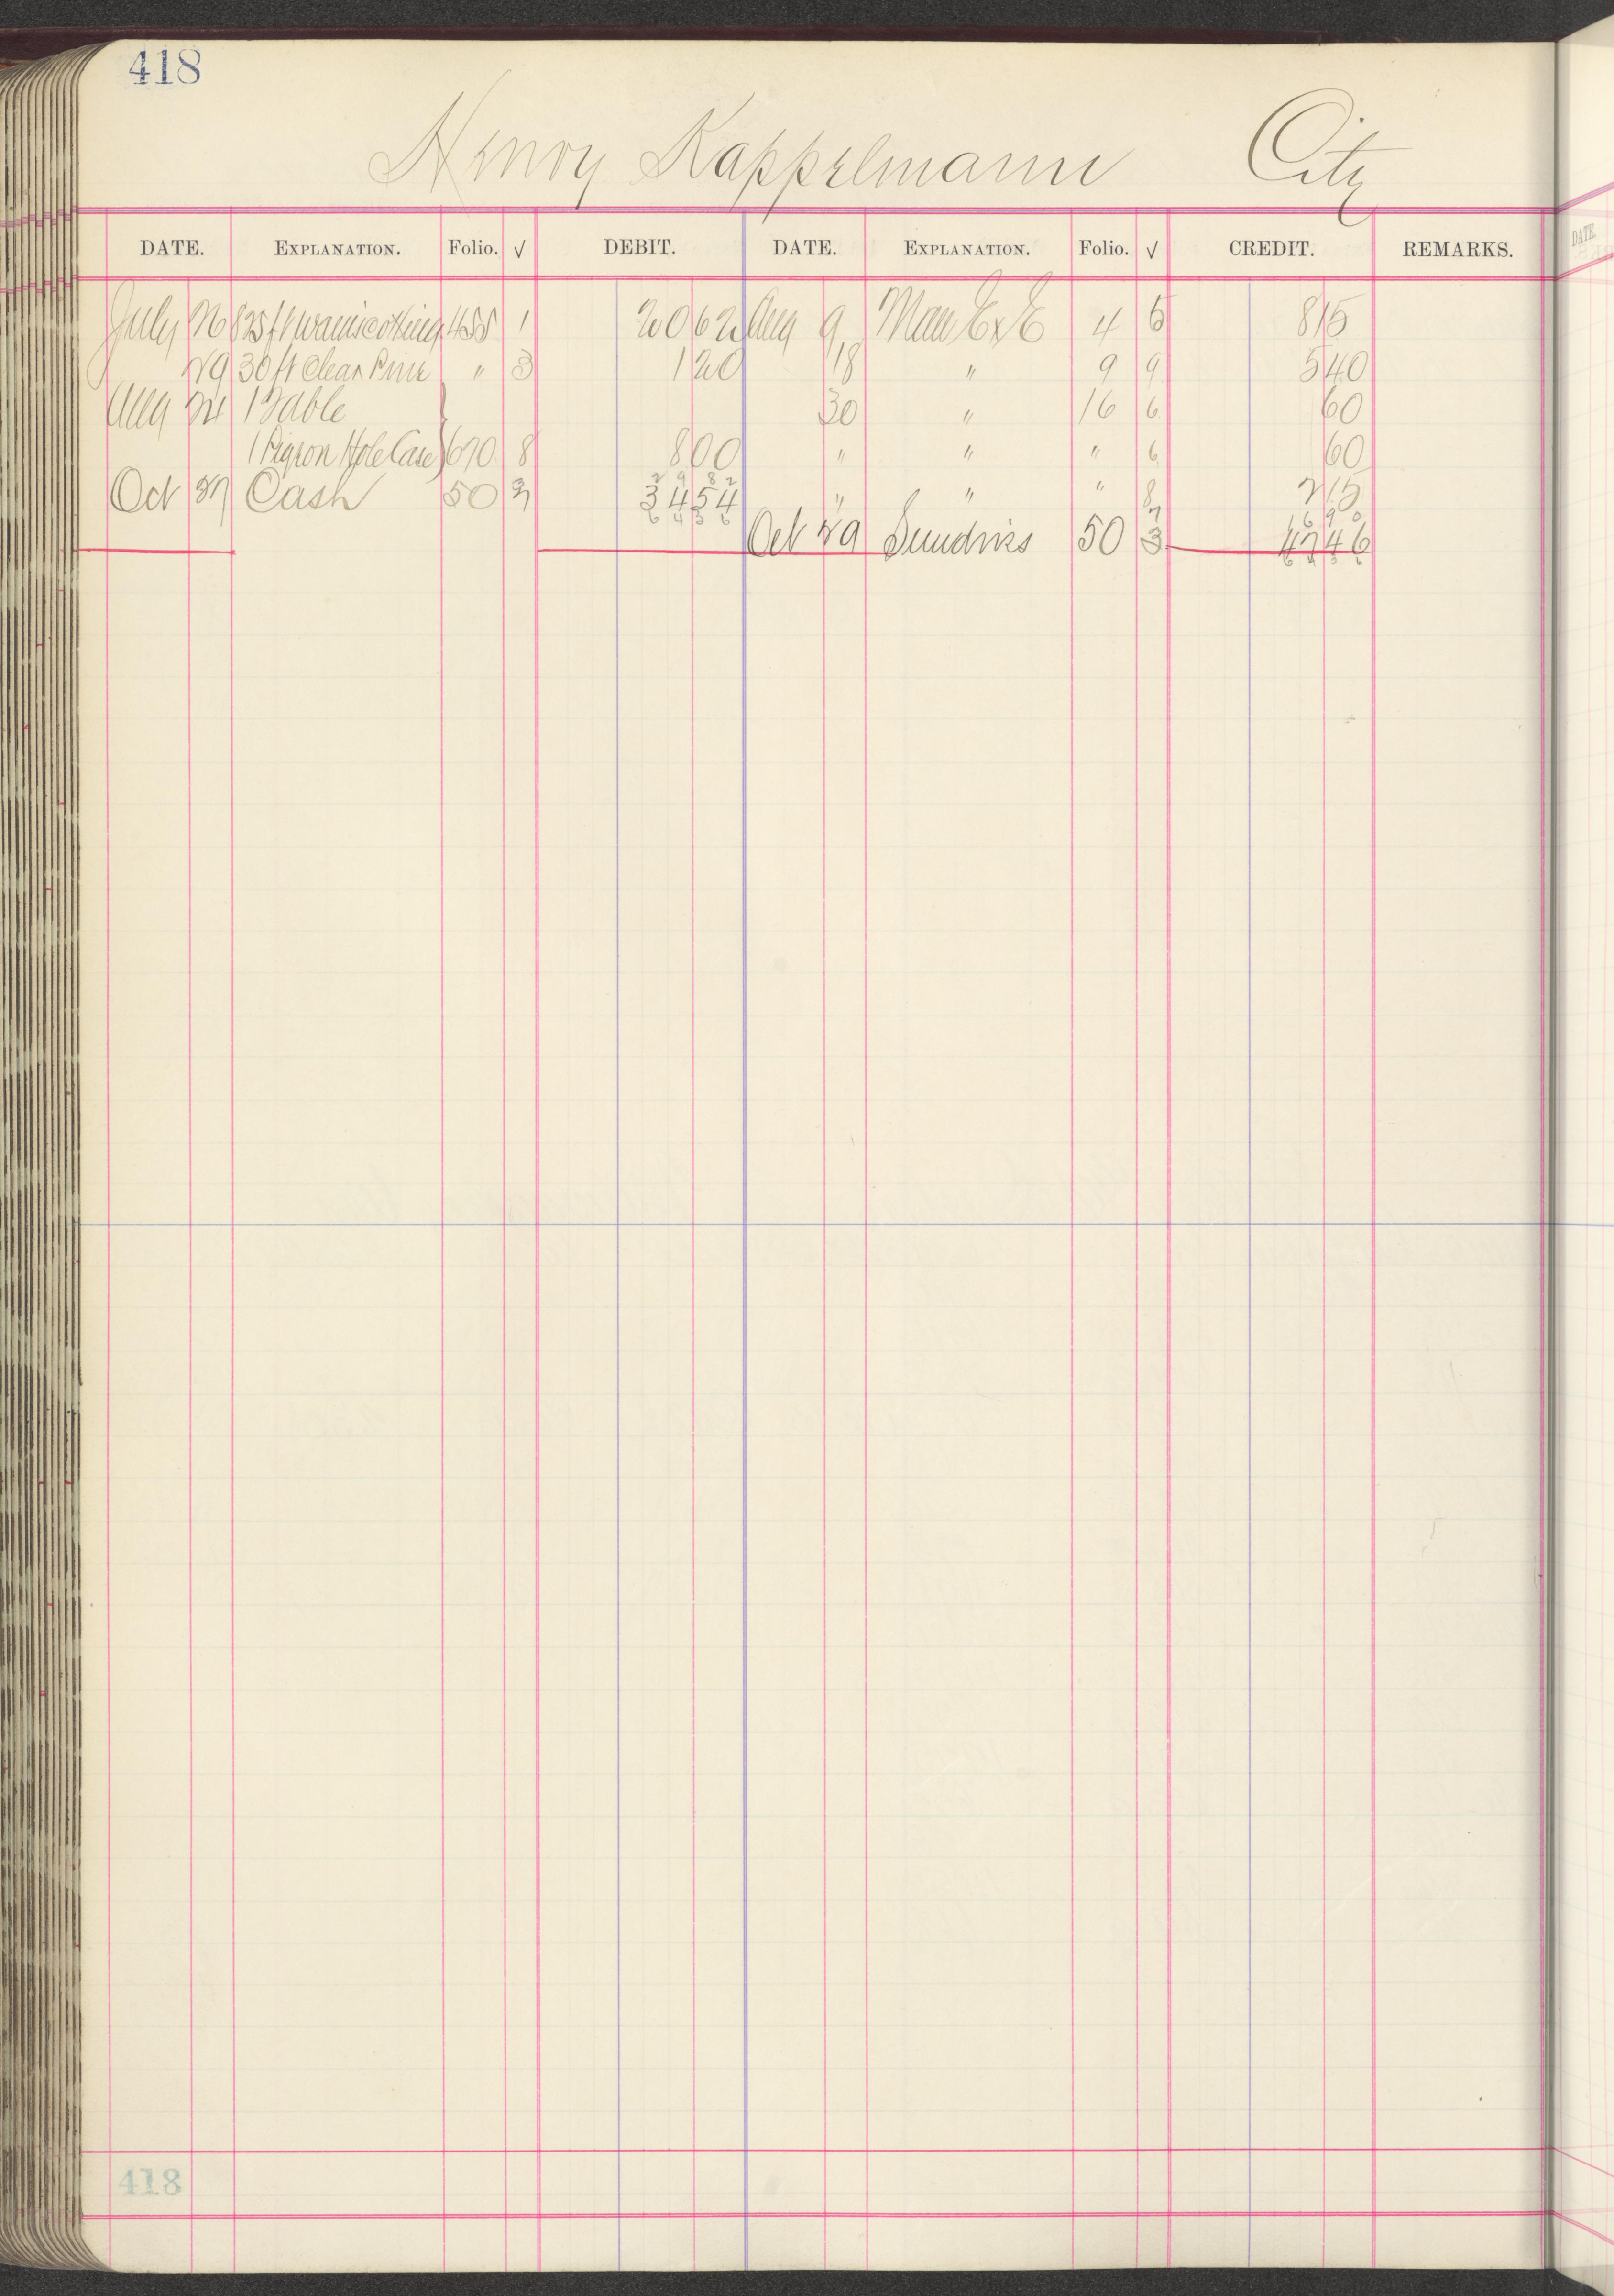 418
Henry Kappelmann City
DATE. EXPLANATION. Folio. √ DEBIT. DATE. EXPLANATION. Folio. √ CREDIT. REMARKS.
July 26 825 ft wainscotting 455 1 20 62 Aug 9 Man Ex E 4 5 8 15
29 30 ft Clear Pine " 3 1 20 18 " 9 9 5 40
Aug 24 1 Table 30 " 16 6 60
1 Pigeon Hole Case 670 8 8 00 " " " 6 60
29 82
Oct 27 Cash 50 2 34 54 " " " 8 2 15
64 36
Oct 29 Sundries 50 3 47 46
418